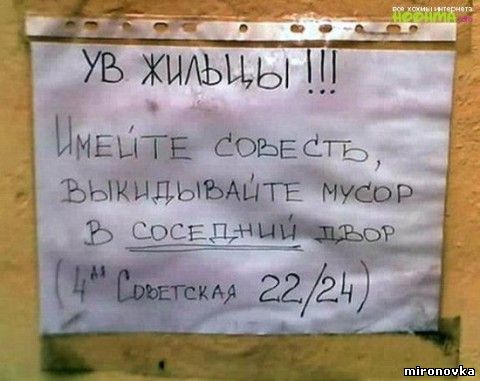 все хохмы интернета
УВ ЖИЛЬЦЫ!!!
ИМЕЙТЕ СОВЕСТЬ,
ВЫКИДЫВАЙТЕ МУСОР
В СОСЕДНИЙ ДВОР
(4ая СОВЕТСКАЯ 22/24)
mironovka